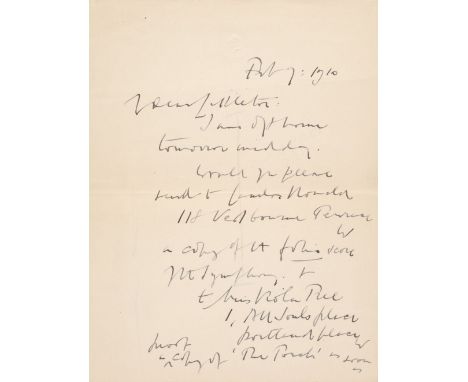 Feb 7: 1910
Dear Littleton:
I am off home
tomorrow midday.
Would you please
send to Landon Ronald
118 Westbourne Terrace
W
a copy of the folio score
of the Symphony. &
to Miss Viola Tree
1, All Souls place
portland place
W
proof
a copy of 'The Torch' as soon
as